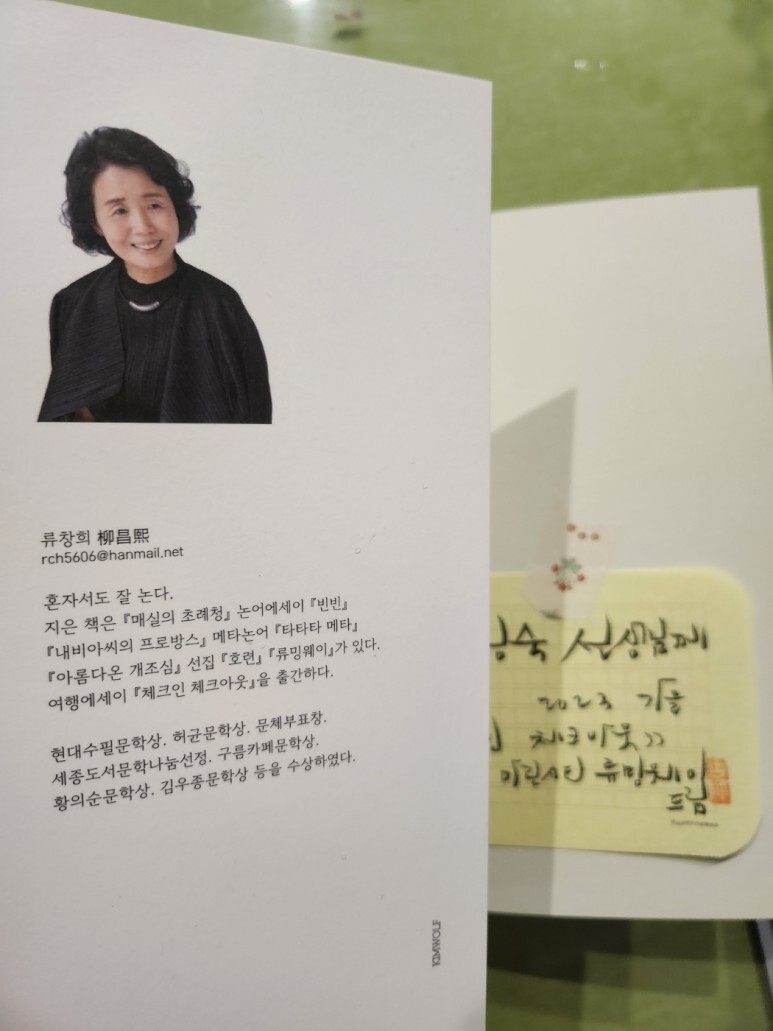 류창희 柳昌熙
rch5606@hanmail.net
혼자서도 잘 논다.
지은 책은 『매실의 초례청』 논어에세이 『빈빈』
『내비아씨의 프로방스』 메타논어 『타타타 메타』
『아롬다온 개조심』 선집 『호련』 『류밍웨이』가 있다.
여행에세이 『체크인 체크아웃』을 출간하다.
현대수필문학상. 허균문학상. 문체부표창.
세종도서문학나눔선정. 구름카페문학상.
황의순문학상. 김우종문학상 등을 수상하였다.
KIMWOLF
숙 선생님께
2023 가을
체크아웃>>
류밍웨이
드림